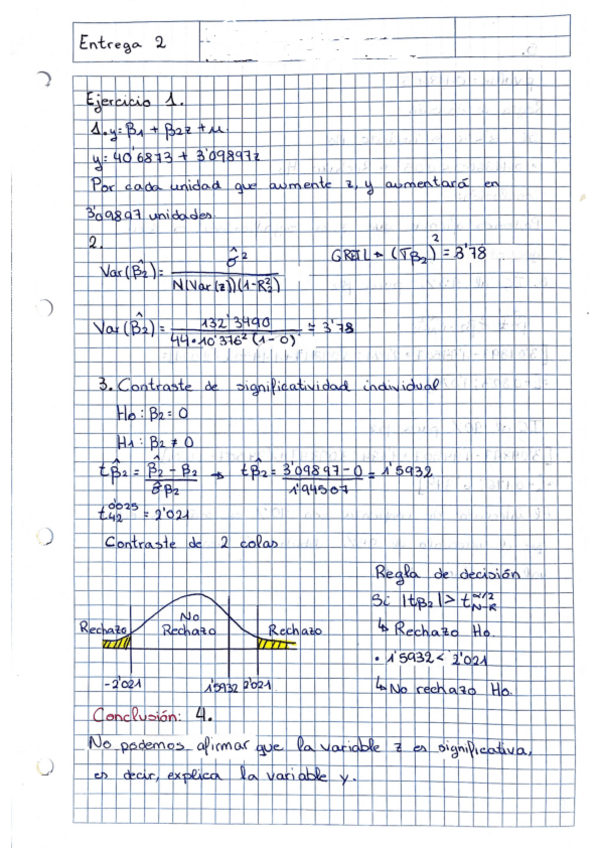 Entrega 2
Ejercicio 1.
1. y = β1 + β2z + u.
y = 40'6873 + 3'09897z
Por cada unidad que aumente z, y aumentará en
3'09897 unidades
2.
Var(β̂2) = σ̂² / N(Var(z))(1-R²2)
GRETL → (σβ2)² = 3'78
Var(β̂2) = 132'3490 / 44·10'376²(1-0) ≅ 3'78
3. Contraste de significatividad individual
H0 : β2 = 0
H1 : β2 ≠ 0
tβ̂2 = β̂2 - β2 / σ̂β2 → tβ̂2 = 3'09897-0 / 1'94507 = 1'5932
t 0'025 42 = 2'021
Contraste de 2 colas
Regla de decisión
Si |tβ2| > t α/2 N-K
↳ Rechazo H0.
· 1'5932 < 2'021
↳ No rechazo H0.
Rechazo
No
Rechazo
Rechazo
-2'021 1'5932 2'021
Conclusión: 4.
No podemos afirmar que la variable z es significativa,
es decir, explica la variable y.